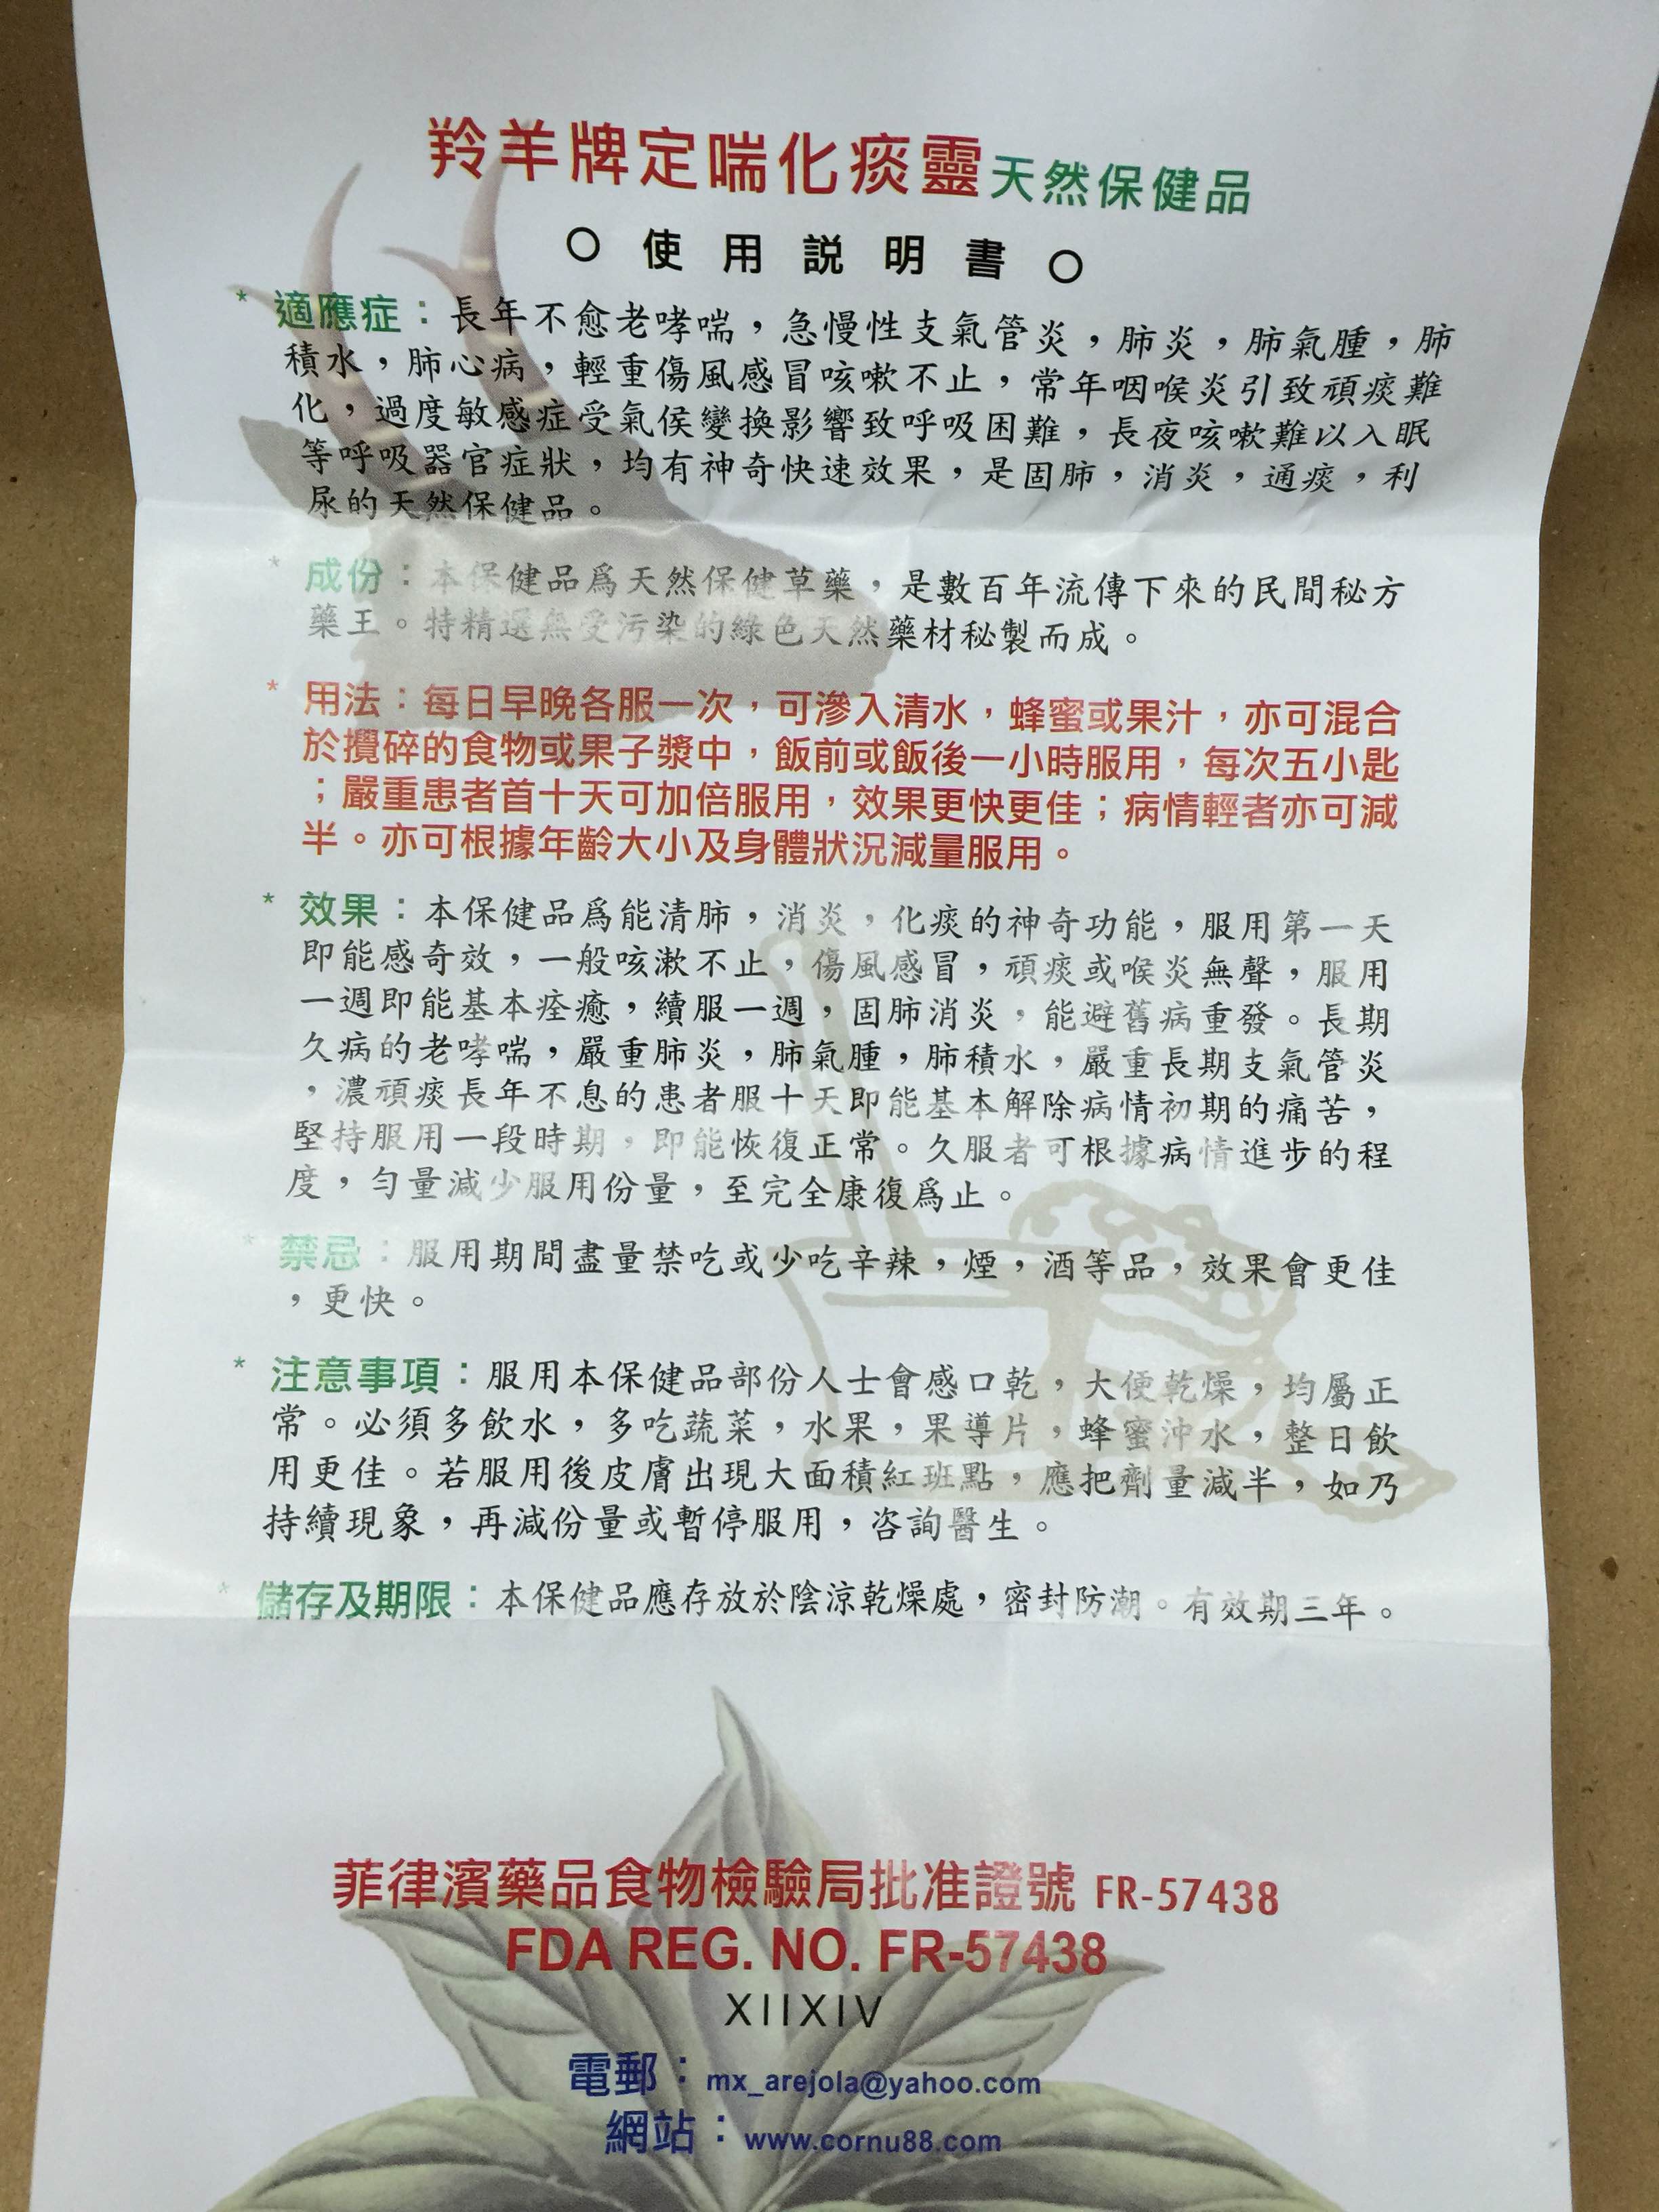 羚羊牌定喘化痰靈天然保健品
○ 使用説明書 ○
* 適應症：長年不愈老哮喘，急慢性支氣管炎，肺炎，肺氣腫，肺
積水，肺心病，輕重傷風感冒咳嗽不止，常年咽喉炎引致頑痰難
化，過度敏感症受氣侯變換影響致呼吸困難，長夜咳嗽難以入眠
等呼吸器官症狀，均有神奇快速效果，是固肺，消炎，通痰，利
尿的天然保健品。
* 成份：本保健品爲天然保健草藥，是數百年流傳下來的民間秘方
藥王。特精選無受污染的綠色天然藥材秘製而成。
* 用法：每日早晚各服一次，可滲入清水，蜂蜜或果汁，亦可混合
於攪碎的食物或果子漿中，飯前或飯後一小時服用，每次五小匙
；嚴重患者首十天可加倍服用，效果更快更佳；病情輕者亦可減
半。亦可根據年齡大小及身體狀況減量服用。
* 效果：本保健品爲能清肺，消炎，化痰的神奇功能，服用第一天
即能感奇效，一般咳漱不止，傷風感冒，頑痰或喉炎無聲，服用
一週即能基本痊癒，續服一週，固肺消炎，能避舊病重發。長期
久病的老哮喘，嚴重肺炎，肺氣腫，肺積水，嚴重長期支氣管炎
，濃頑痰長年不息的患者服十天即能基本解除病情初期的痛苦，
堅持服用一段時期，即能恢復正常。久服者可根據病情進步的程
度，勻量減少服用份量，至完全康復爲止。
* 禁忌：服用期間盡量禁吃或少吃辛辣，煙，酒等品，效果會更佳
，更快。
* 注意事項：服用本保健品部份人士會感口乾，大便乾燥，均屬正
常。必須多飲水，多吃蔬菜，水果，果導片，蜂蜜沖水，整日飲
用更佳。若服用後皮膚出現大面積紅班點，應把劑量減半，如乃
持續現象，再減份量或暫停服用，咨詢醫生。
* 儲存及期限：本保健品應存放於陰涼乾燥處，密封防潮。有效期三年。
菲律濱藥品食物檢驗局批准證號 FR-57438
FDA REG. NO. FR-57438
XIIXIV
電郵：mx_arejola@yahoo.com
網站：www.cornu88.com